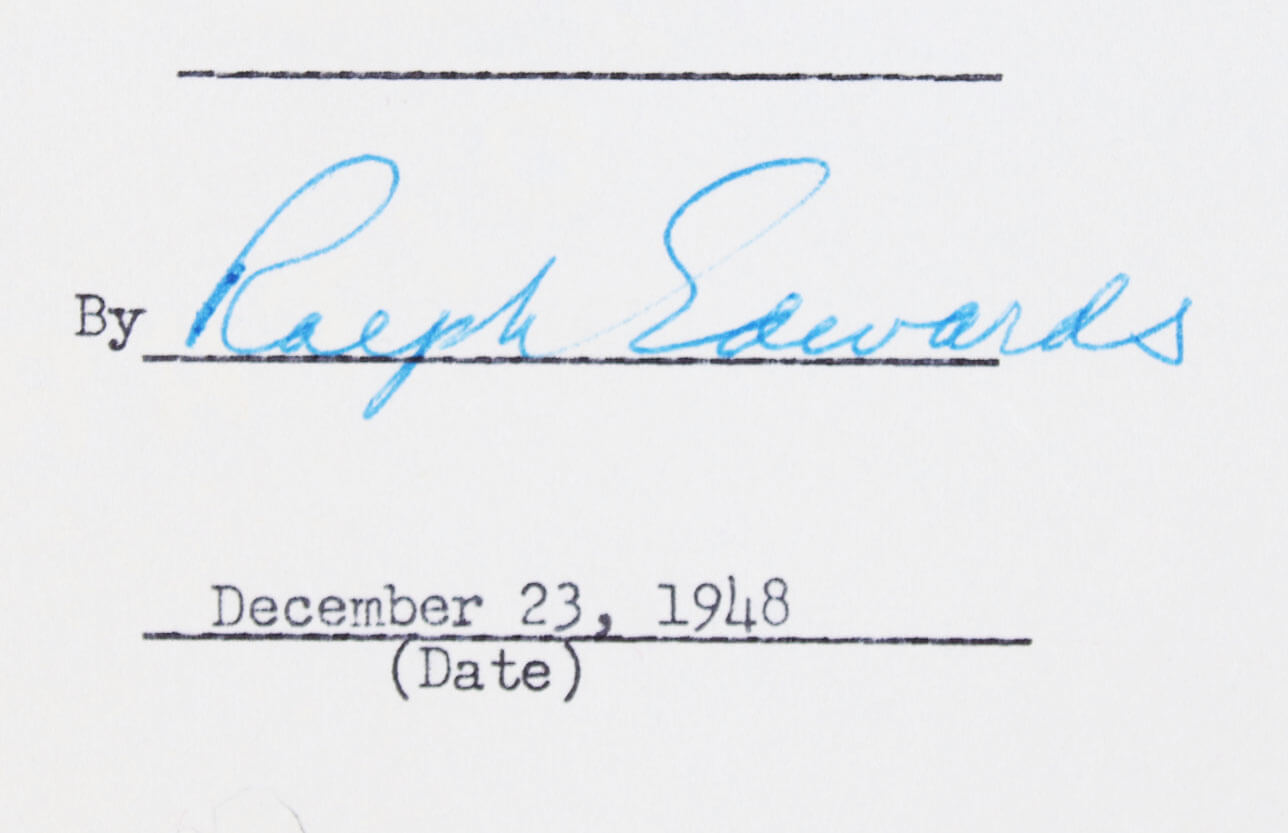 By Ralph Edwards
December 23, 1948
(Date)